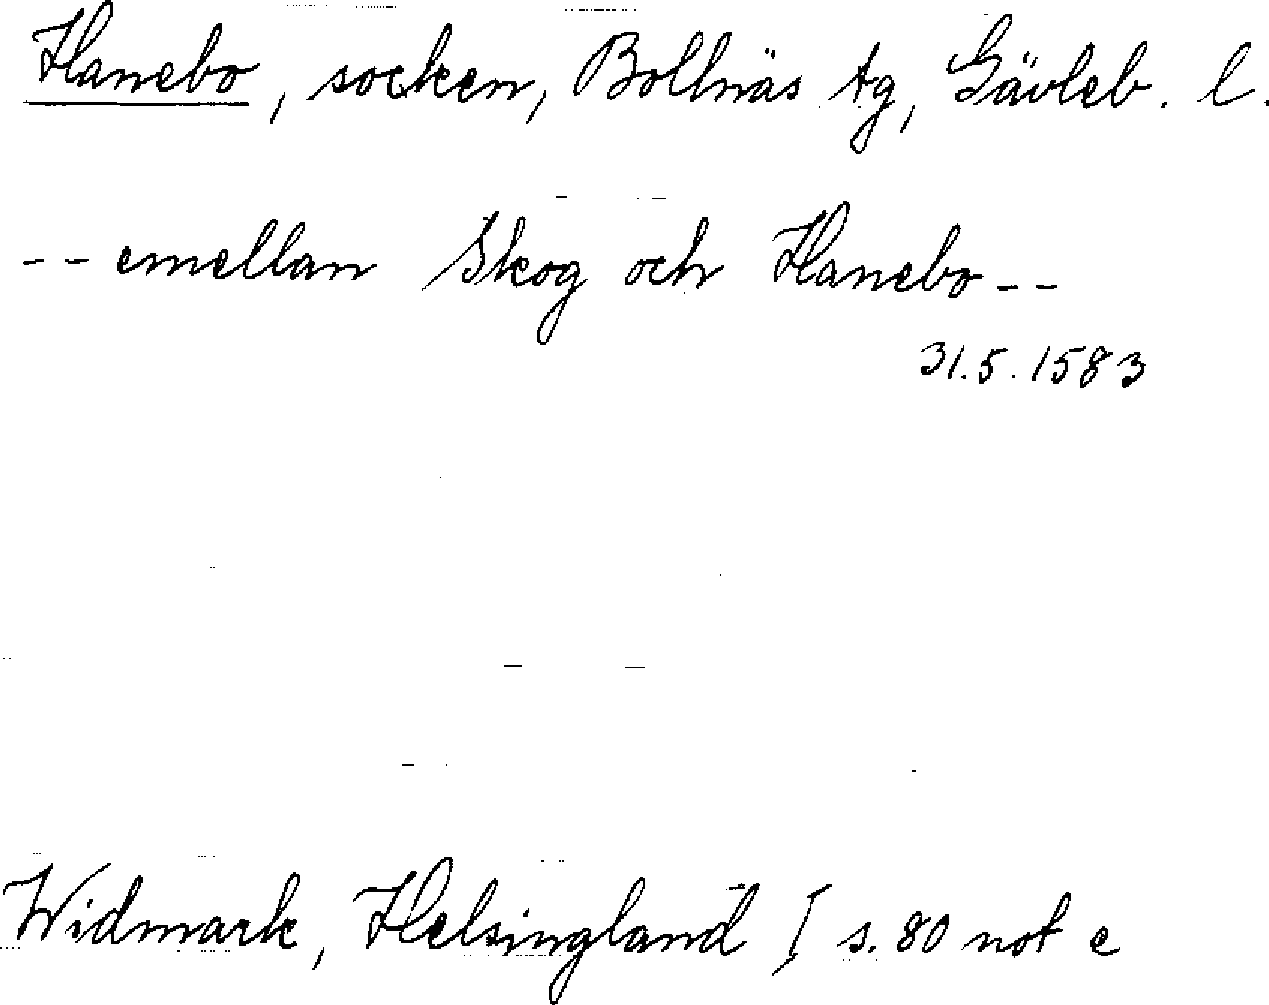 Hanebo, socken, Bollnäs tg, Gävleb. l.
-- emellan Skog och Hanebo --
31.5.1583
Widmark, Helsingland I s. 80 not e